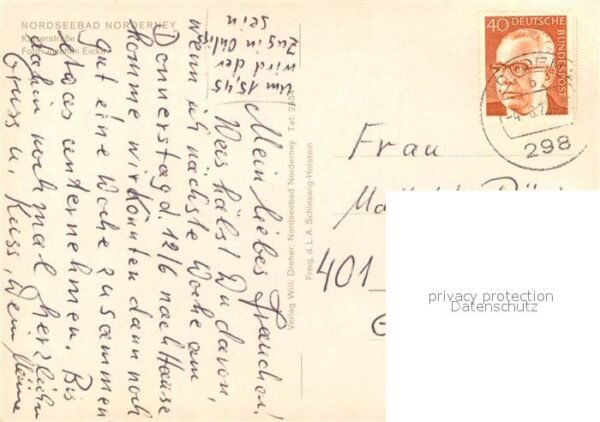 NORDSEEBAD NORDERNEY
Kaiserstraße
Foto: Joachim Eicke
Um 15,45
wird der
Zug in Ohligs
sein
Mein liebes Frauchen!
Was hälst Du davon,
wenn ich nächste Woche am
Donnerstag d. 12/6 nach Hause
komme wir könnten dann noch
gut eine Woche zusammen
etwas unternehmen. Bis
dahin noch mal herzlichen
Gruss u. Kuss, Dein
Verlag Willi Dreher, Nordseebad Norderney Tel:
Freig. d. L.A. Schleswig-Holstein
40
DEUTSCHE
BUNDESPOST
298
Frau
401
privacy protection
Datenschutz